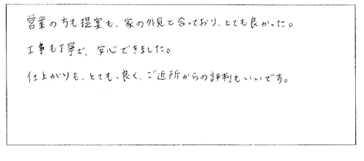 営業の方も提案も、家の外見と合っており、とても良かった。
工事も丁寧で、安心できました。
仕上がりも、とても良く、ご近所からの評判もいいです。